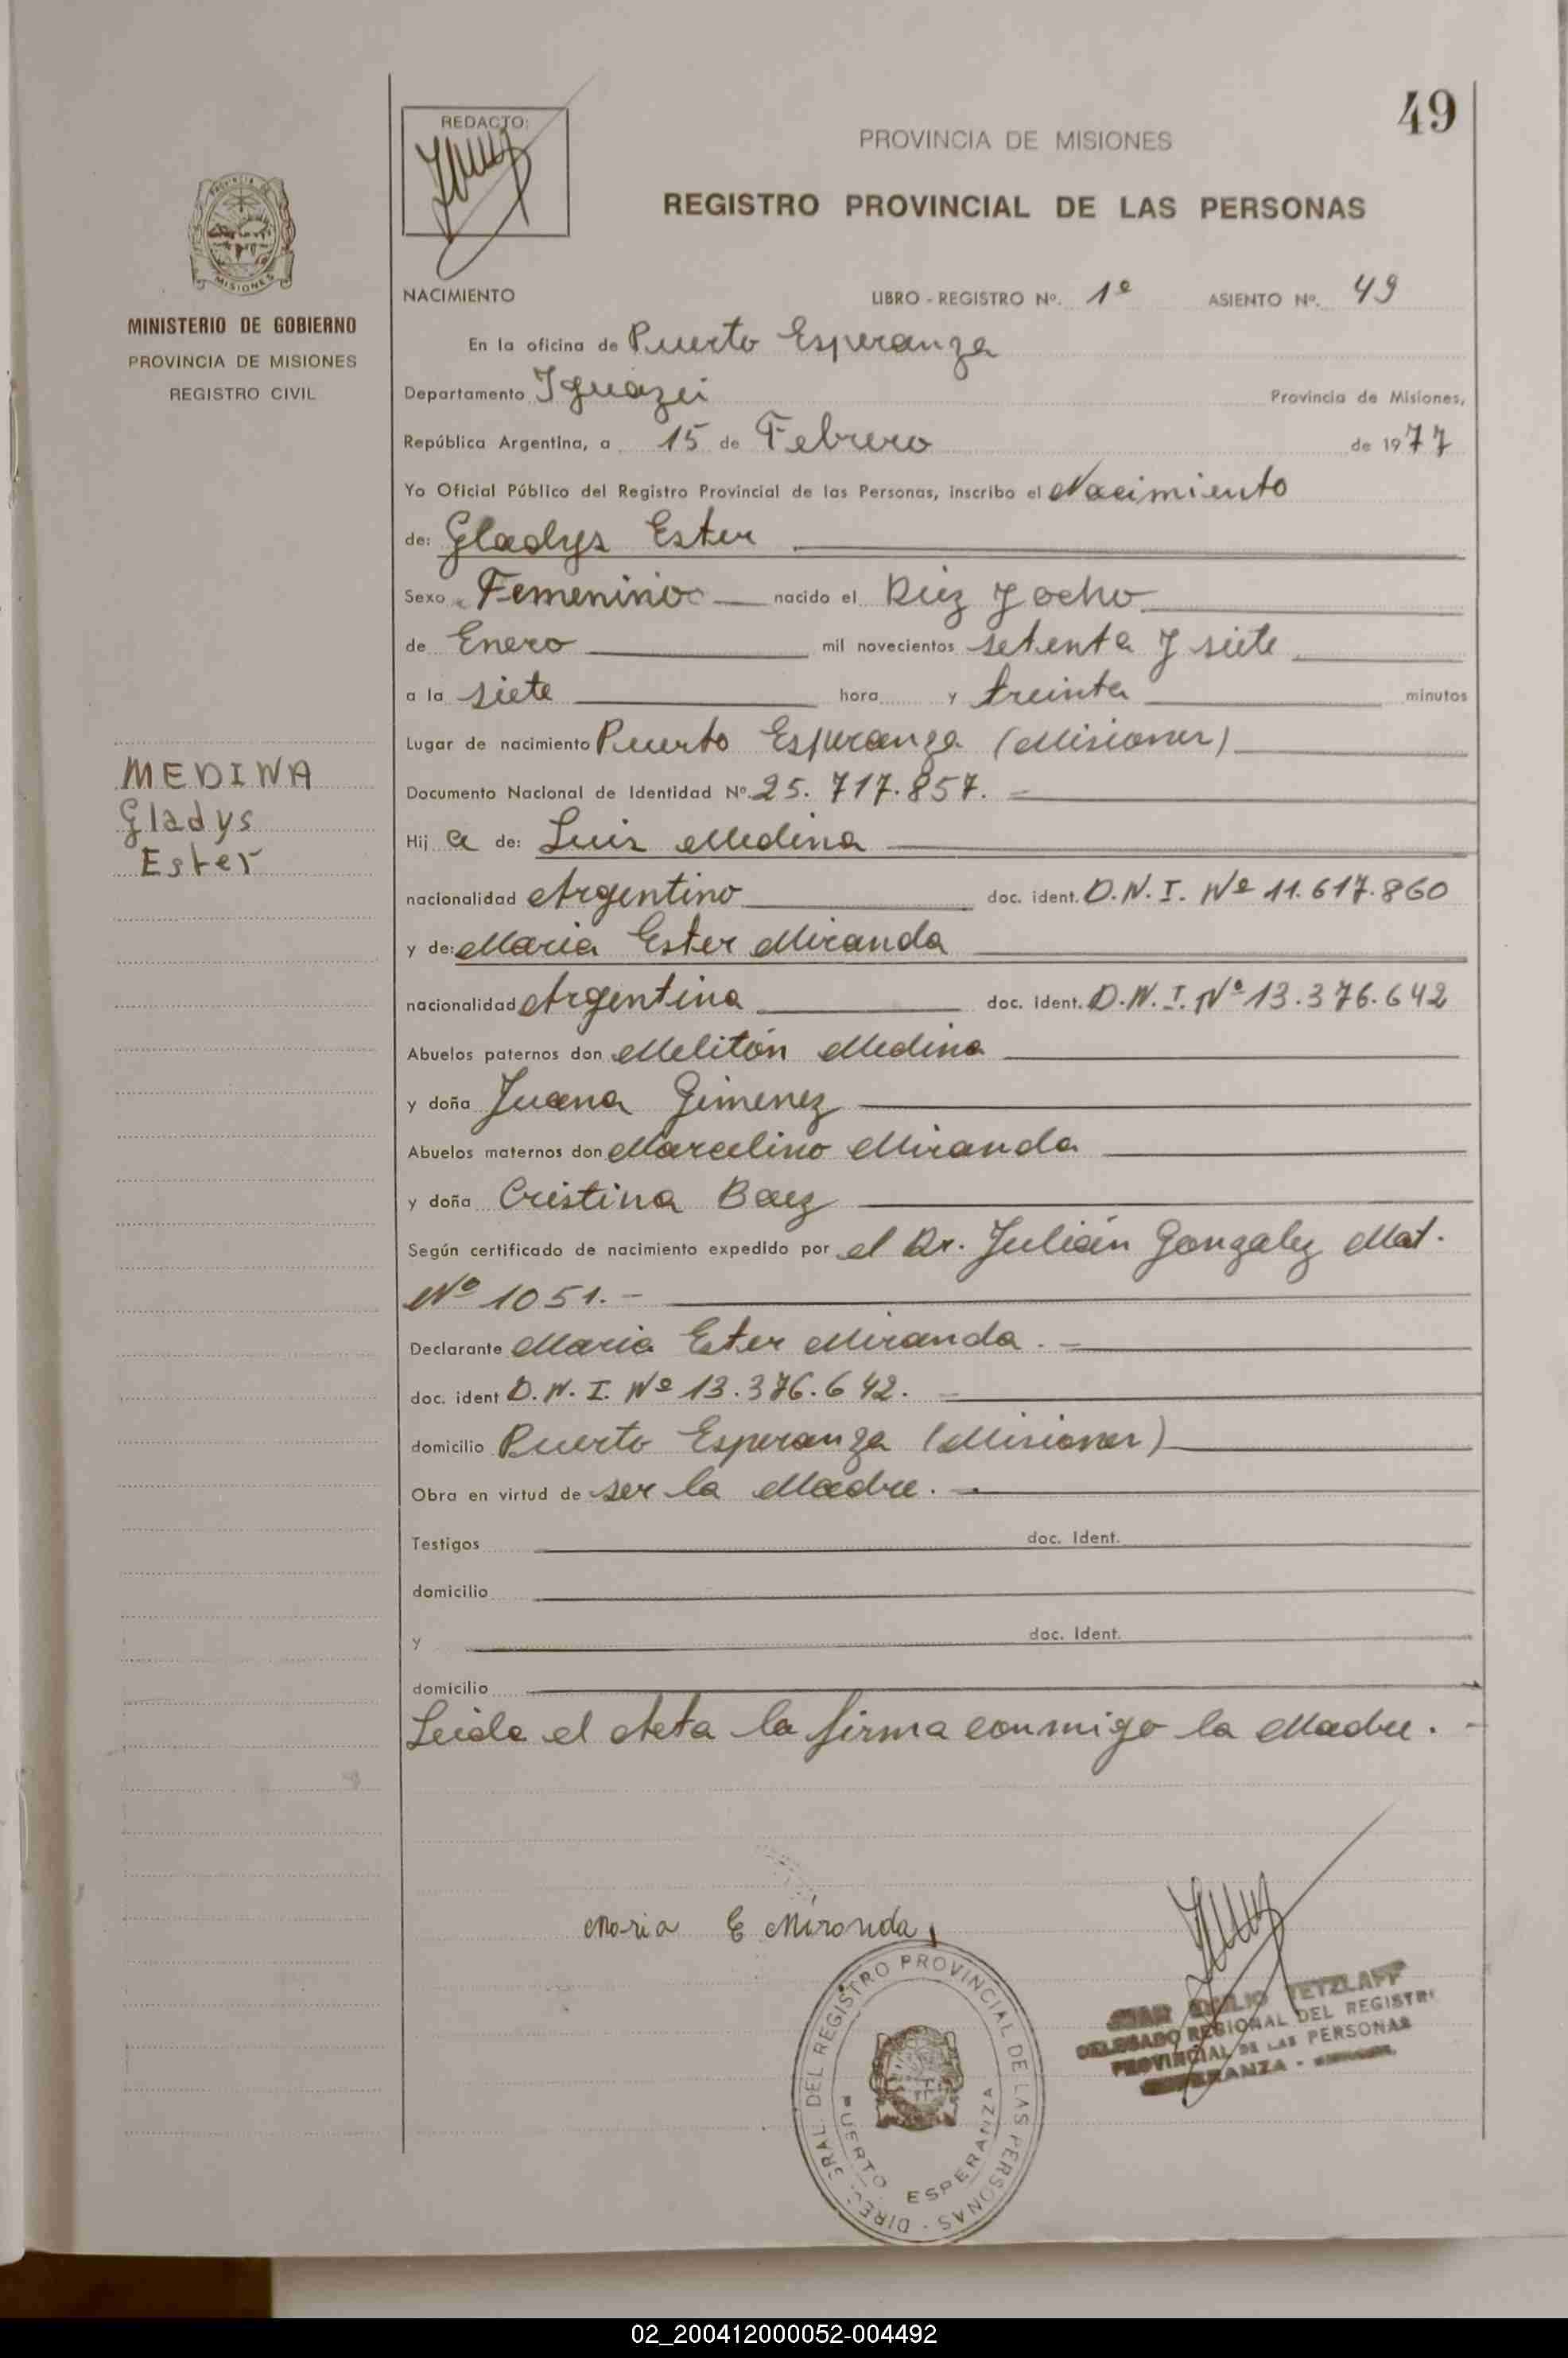 49
REDACTO:
PROVINCIA DE MISIONES
REGISTRO PROVINCIAL DE LAS PERSONAS
PROVINCIA DE
MISIONES
MINISTERIO DE GOBIERNO
PROVINCIA DE MISIONES
REGISTRO CIVIL
NACIMIENTO LIBRO - REGISTRO Nº. 1º ASIENTO Nº. 49
En la oficina de Puerto Esperanza
Departamento Iguazú Provincia de Misiones,
República Argentina, a 15 de Febrero de 1977
Yo Oficial Público del Registro Provincial de las Personas, inscribo el Nacimiento
de: Gladys Ester
Sexo Femenino nacido el Diez y ocho
de Enero mil novecientos setenta y siete
a la siete hora y treinta minutos
Lugar de nacimiento Puerto Esperanza (Misiones)
MEDINA
Gladys
Ester
Documento Nacional de Identidad Nº. 25.717.857. -
Hij a de: Luis Medina
nacionalidad Argentino doc. ident. D.N.I. Nº 11.617.860
y de: Maria Ester Miranda
nacionalidad Argentina doc. ident. D.N.I. Nº 13.376.642
Abuelos paternos don Melitón Medina
y doña Juana Gimenez
Abuelos maternos don Marcelino Miranda
y doña Cristina Baez
Según certificado de nacimiento expedido por el Dr. Julián Gonzalez Mat.
Nº 1051. -
Declarante Maria Ester Miranda. -
doc. ident D.N.I. Nº 13.376.642. -
domicilio Puerto Esperanza (Misiones)
Obra en virtud de ser la Madre. -
Testigos doc. Ident.
domicilio
y doc. Ident.
domicilio
Leida el Acta la firma conmigo la Madre. -
Maria E Miranda
DEL REGISTRO PROVINCIAL DE LAS PERSONAS -
PUERTO ESPERANZA
TETZLAFF
DELEGADO REGIONAL DEL REGISTR
PROVINCIAL DE LAS PERSONAS
02_200412000052-004492